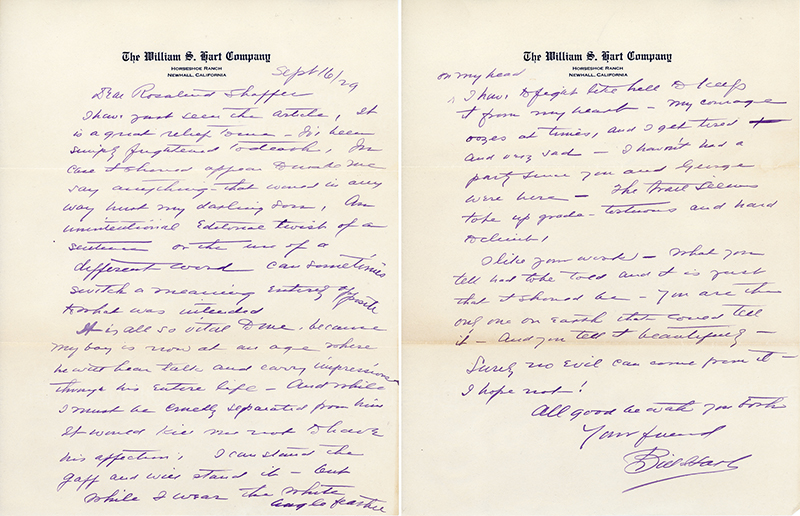 The William S. Hart Company
HORSESHOE RANCH
NEWHALL, CALIFORNIA
Sept 16/29
Dear Rosalind Shaffer
I have just seen the article, It
is a great relief to me – I've been
simply frightened to death, In
case it should appear to make me
say anything that would in any
way hurt my darling son, An
unintentional Editorial twist of a
sentence or the use of a
different word can sometimes
switch a meaning entirely opposite
to what was intended
It is all so vital to me, because
my boy is now at an age where
he will hear talk and carry impressions
through his entire life – And while
I must be cruelly separated from him
It would kill me not to have
his affection! I can stand the
gaff and will stand it – but
while I wear the white
feather
The William S. Hart Company
HORSESHOE RANCH
NEWHALL, CALIFORNIA
on my head
I have to fight like hell to keep
it from my heart – my courage
oozes at times, and I get tired
and very sad – I haven't had a
party since you and George
were here – The trail seems
to be up grade – tortuous and hard
to climb!
I like your work – What you
tell had to be told and it is just
that it should be – You are the
only one on Earth that could tell
it – And you tell it beautifully –
Surely no Evil can come from it –
I hope not!
All good be with you both
Your friend
Bill Hart